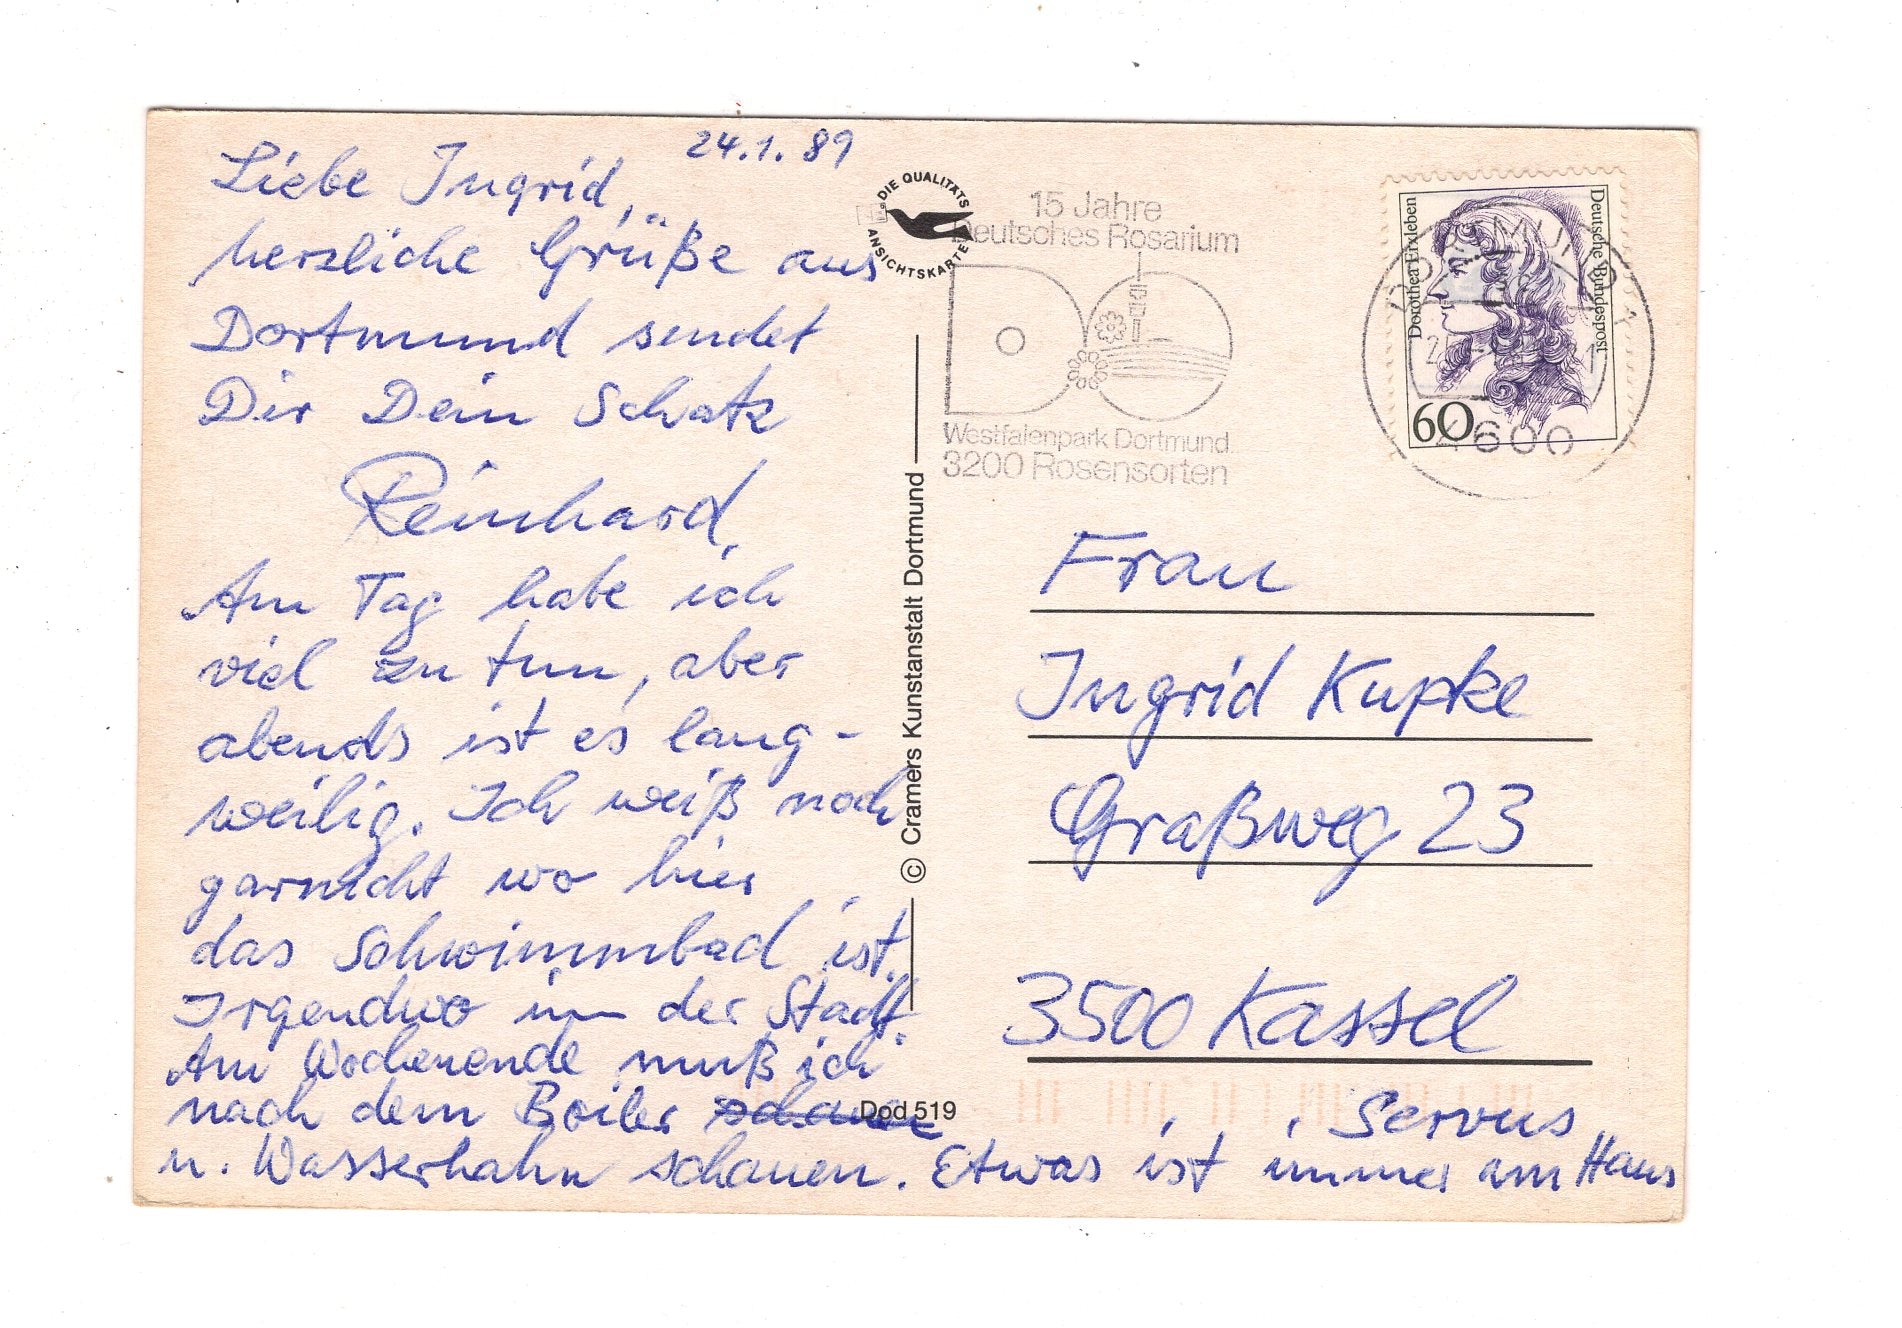 24.1.89
Liebe Ingrid,
herzliche Grüße aus
Dortmund sendet
Dir Dein Schatz
Reinhard
Am Tag habe ich
viel zu tun, aber
abends ist es lang-
weilig. Ich weiß noch
garnicht wo hier
das Schwimmbad ist.
Irgendwo in der Stadt.
Am Wochenende muß ich
nach dem Boiler schauen
u. Wasserhahn schauen. Etwas ist immer am Haus
Servus
DIE QUALITÄTS
ANSICHTSKARTE
© Cramers Kunstanstalt Dortmund
Dod 519
15 Jahre
Deutsches Rosarium
Westfalenpark Dortmund
3200 Rosensorten
Dorothea Erxleben
Deutsche Bundespost
60
DORTMUND
4600
Frau
Ingrid Kupke
Graßweg 23
3500 Kassel